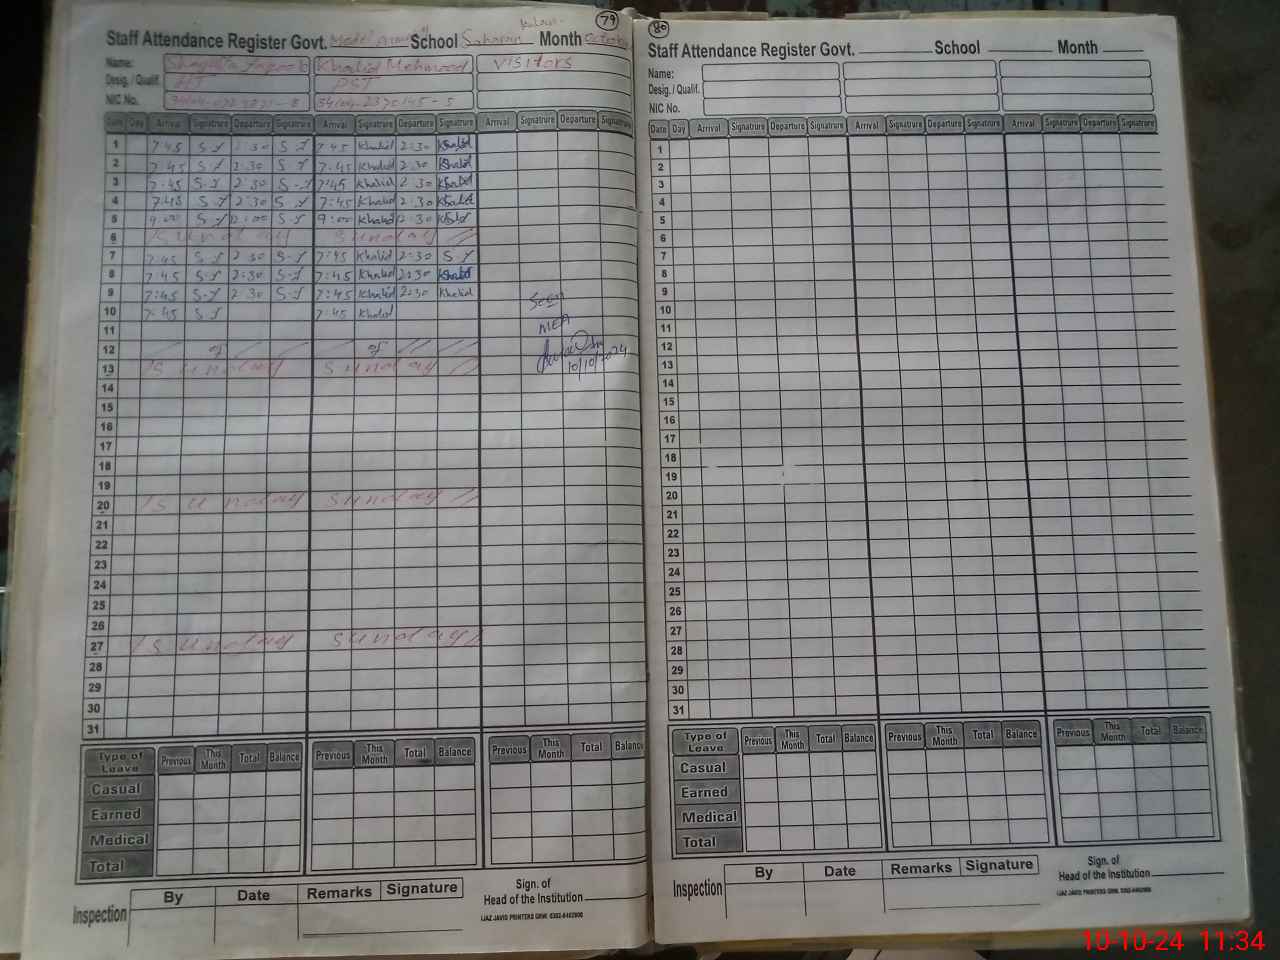 79
Staff Attendance Register Govt. Model School Saharan Kalan Month October
Name: Khalid Mehmood Visitors
Desig. / Qualif. HT PST
NIC No.
Date Day Arrival Signatrure Departure Signatrure Arrival Signatrure Departure Signatrure Arrival Signatrure Departure Signatrure
1 7:45 S-J 2:30 S-J 7:45 Khalid 2:30 Khalid
2 7:45 S-J 2:30 S-J 7:45 Khalid 2:30 Khalid
3 7:45 S-J 2:30 S-J 7:45 Khalid 2:30 Khalid
4 7:45 S-J 2:30 S-J 7:45 Khalid 2:30 Khalid
5 9:00 S-J 12:00 S-J 9:00 Khalid 12:30 Khalid
6 Sunday Sunday
7 7:45 S-J 2:30 S-J 7:45 Khalid 2:30 S-J
8 7:45 S-J 2:30 S-J 7:45 Khalid 2:30 Khalid
9 7:45 S-J 2:30 S-J 7:45 Khalid 2:30 Khalid
10 7:45 S-J 7:45 Khalid
Seen
MEA
10/10/2024
11
12
13 Sunday Sunday
14
15
16
17
18
19
20 Sunday Sunday
21
22
23
24
25
26
27 Sunday Sunday
28
29
30
31
Type of Leave Previous This Month Total Balance Previous This Month Total Balance Previous This Month Total Balance
Casual
Earned
Medical
Total
Inspection By Date Remarks Signature
Sign. of
Head of the Institution
IJAZ JAVID PRINTERS GRW. 0302-6462908
80
Staff Attendance Register Govt. School Month
Name:
Desig. / Qualif.
NIC No.
Date Day Arrival Signatrure Departure Signatrure Arrival Signatrure Departure Signatrure Arrival Signatrure Departure Signatrure
1
2
3
4
5
6
7
8
9
10
11
12
13
14
15
16
17
18
19
20
21
22
23
24
25
26
27
28
29
30
31
Type of Leave Previous This Month Total Balance Previous This Month Total Balance Previous This Month Total Balance
Casual
Earned
Medical
Total
Inspection By Date Remarks Signature
Sign. of
Head of the Institution
IJAZ JAVID PRINTERS GRW. 0302-6462908
10-10-24 11:34